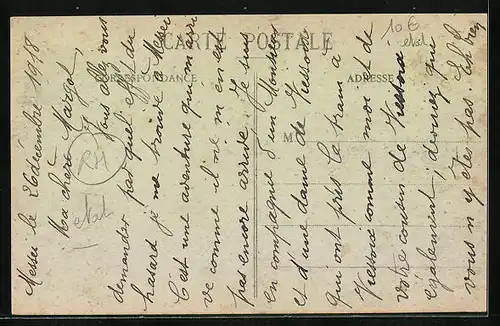 CARTE POSTALE
CORRESPONDANCE
ADRESSE
M
10 €
etat
RH
etat
Messei le 26 décembre 1918
Ma chère Margot,
Vous allez vous
demander par quel effet du
hasard je me trouve à Messei
C'est une aventure qui m'arri
ve comme il ne m'en est
pas encore arrivé. Je suis
en compagnie d'un Monsieur
et d'une dame de
qui ont pris le train à
comme moi et de
votre cousin de
également, devinez qui
vous n'y êtes pas. Eh bien